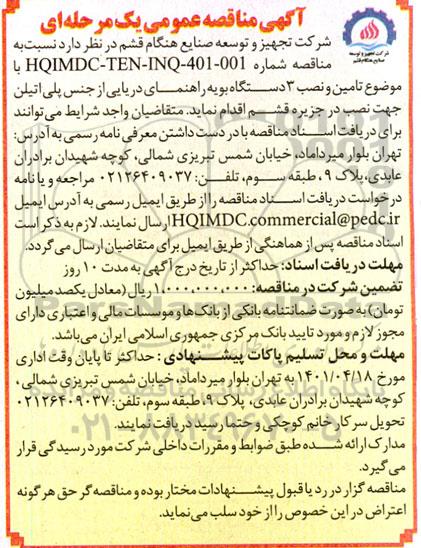 آگهی مناقصه عمومی یک مرحله‌ای
شرکت تجهیز و توسعه
صنایع هنگام قشم
شرکت تجهیز و توسعه صنایع هنگام قشم در نظر دارد نسبت به
مناقصه شماره HQIMDC-TEN-INQ-401-001 با
موضوع تامین و نصب ۳ دستگاه بویه راهنمای دریایی از جنس پلی اتیلن
جهت نصب در جزیره قشم اقدام نماید. متقاضیان واجد شرایط می‌توانند
برای دریافت اسناد مناقصه با در دست داشتن معرفی نامه رسمی به آدرس:
تهران بلوار میرداماد، خیابان شمس تبریزی شمالی، کوچه شهیدان برادران
عابدی، پلاک ۹، طبقه سوم، تلفن: ۰۲۱۲۶۴۰۹۰۳۷ مراجعه و یا نامه
درخواست دریافت اسناد مناقصه را از طریق ایمیل رسمی به آدرس ایمیل
HQIMDC.commercial@pedc.ir ارسال نمایند. لازم به ذکر است
اسناد مناقصه پس از هماهنگی از طریق ایمیل برای متقاضیان ارسال می‌گردد.
مهلت دریافت اسناد: حداکثر از تاریخ درج آگهی به مدت ۱۰ روز
تضمین شرکت در مناقصه: ۱،۰۰۰،۰۰۰،۰۰۰ ریال (معادل یکصد میلیون
تومان) به صورت ضمانتنامه بانکی از بانک‌ها و موسسات مالی و اعتباری دارای
مجوز لازم و مورد تایید بانک مرکزی جمهوری اسلامی ایران می‌باشد.
مهلت و محل تسلیم پاکات پیشنهادی: حداکثر تا پایان وقت اداری
مورخ ۱۴۰۱/۰۴/۱۸ به تهران بلوار میرداماد، خیابان شمس تبریزی شمالی،
کوچه شهیدان برادران عابدی، پلاک ۹، طبقه سوم، تلفن: ۰۲۱۲۶۴۰۹۰۳۷
تحویل سرکار خانم کوچکی و حتما رسید دریافت نمایند.
مدارک ارائه شده طبق ضوابط و مقررات داخلی شرکت مورد رسیدگی قرار
می‌گیرد.
مناقصه گزار در رد یا قبول پیشنهادات مختار بوده و مناقصه گر حق هرگونه
اعتراض در این خصوص را از خود سلب می‌نماید.